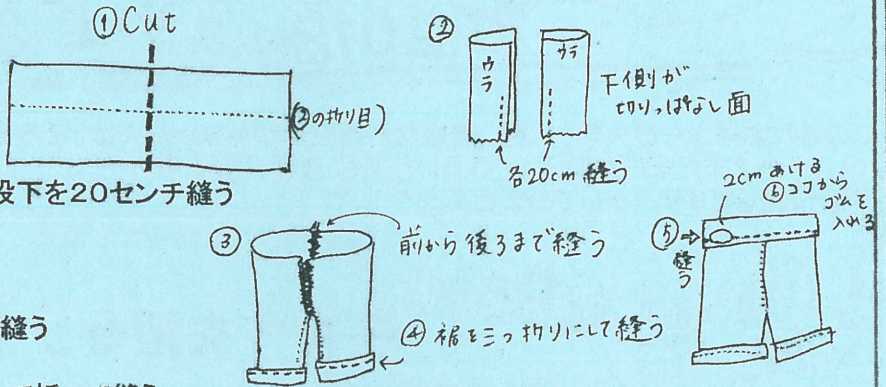 ① Cut
(②の折り目)
股下を20センチ縫う
②
ウラ
ウラ
下側が
切りっぱなし面
各20cm 縫う
③
前から後ろまで縫う
④ 裾を三つ折りにして縫う
縫う
⑤
縫う
2cm あける
⑥ココから
ゴムを
入れる